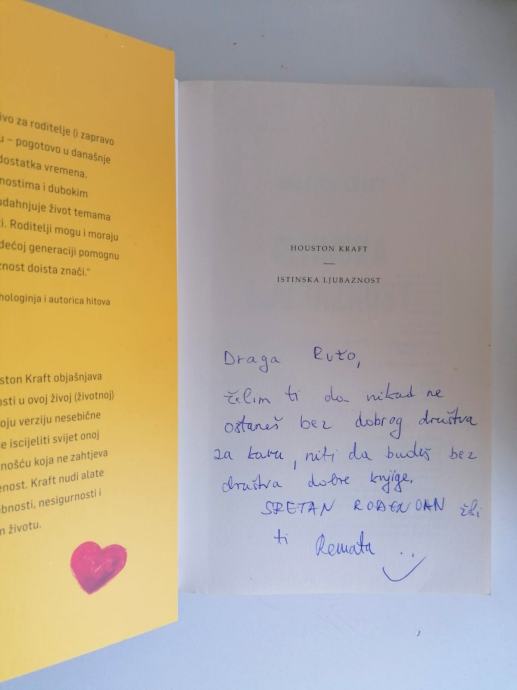 ivo za roditelje (i zapravo
u – pogotovo u današnje
dostatka vremena.
nostima i dubokim
udahnjuje život temama
ti. Roditelji mogu i moraju
dećoj generaciji pomognu
znost doista znači."
hologinja i autorica hitova
ston Kraft objašnjava
osti u ovoj živoj (životnoj)
oju verziju nesebične
e iscijeliti svijet onoj
nošću koja ne zahtjeva
enost. Kraft nudi alate
bnosti, nesigurnosti i
m životu.
HOUSTON KRAFT
—
ISTINSKA LJUBAZNOST
Draga Ružo,
želim ti da nikad ne
ostaneš bez dobrog društva
za kavu, niti da budeš bez
društva dobre knjige.
SRETAN ROĐENDAN želi
ti Renata